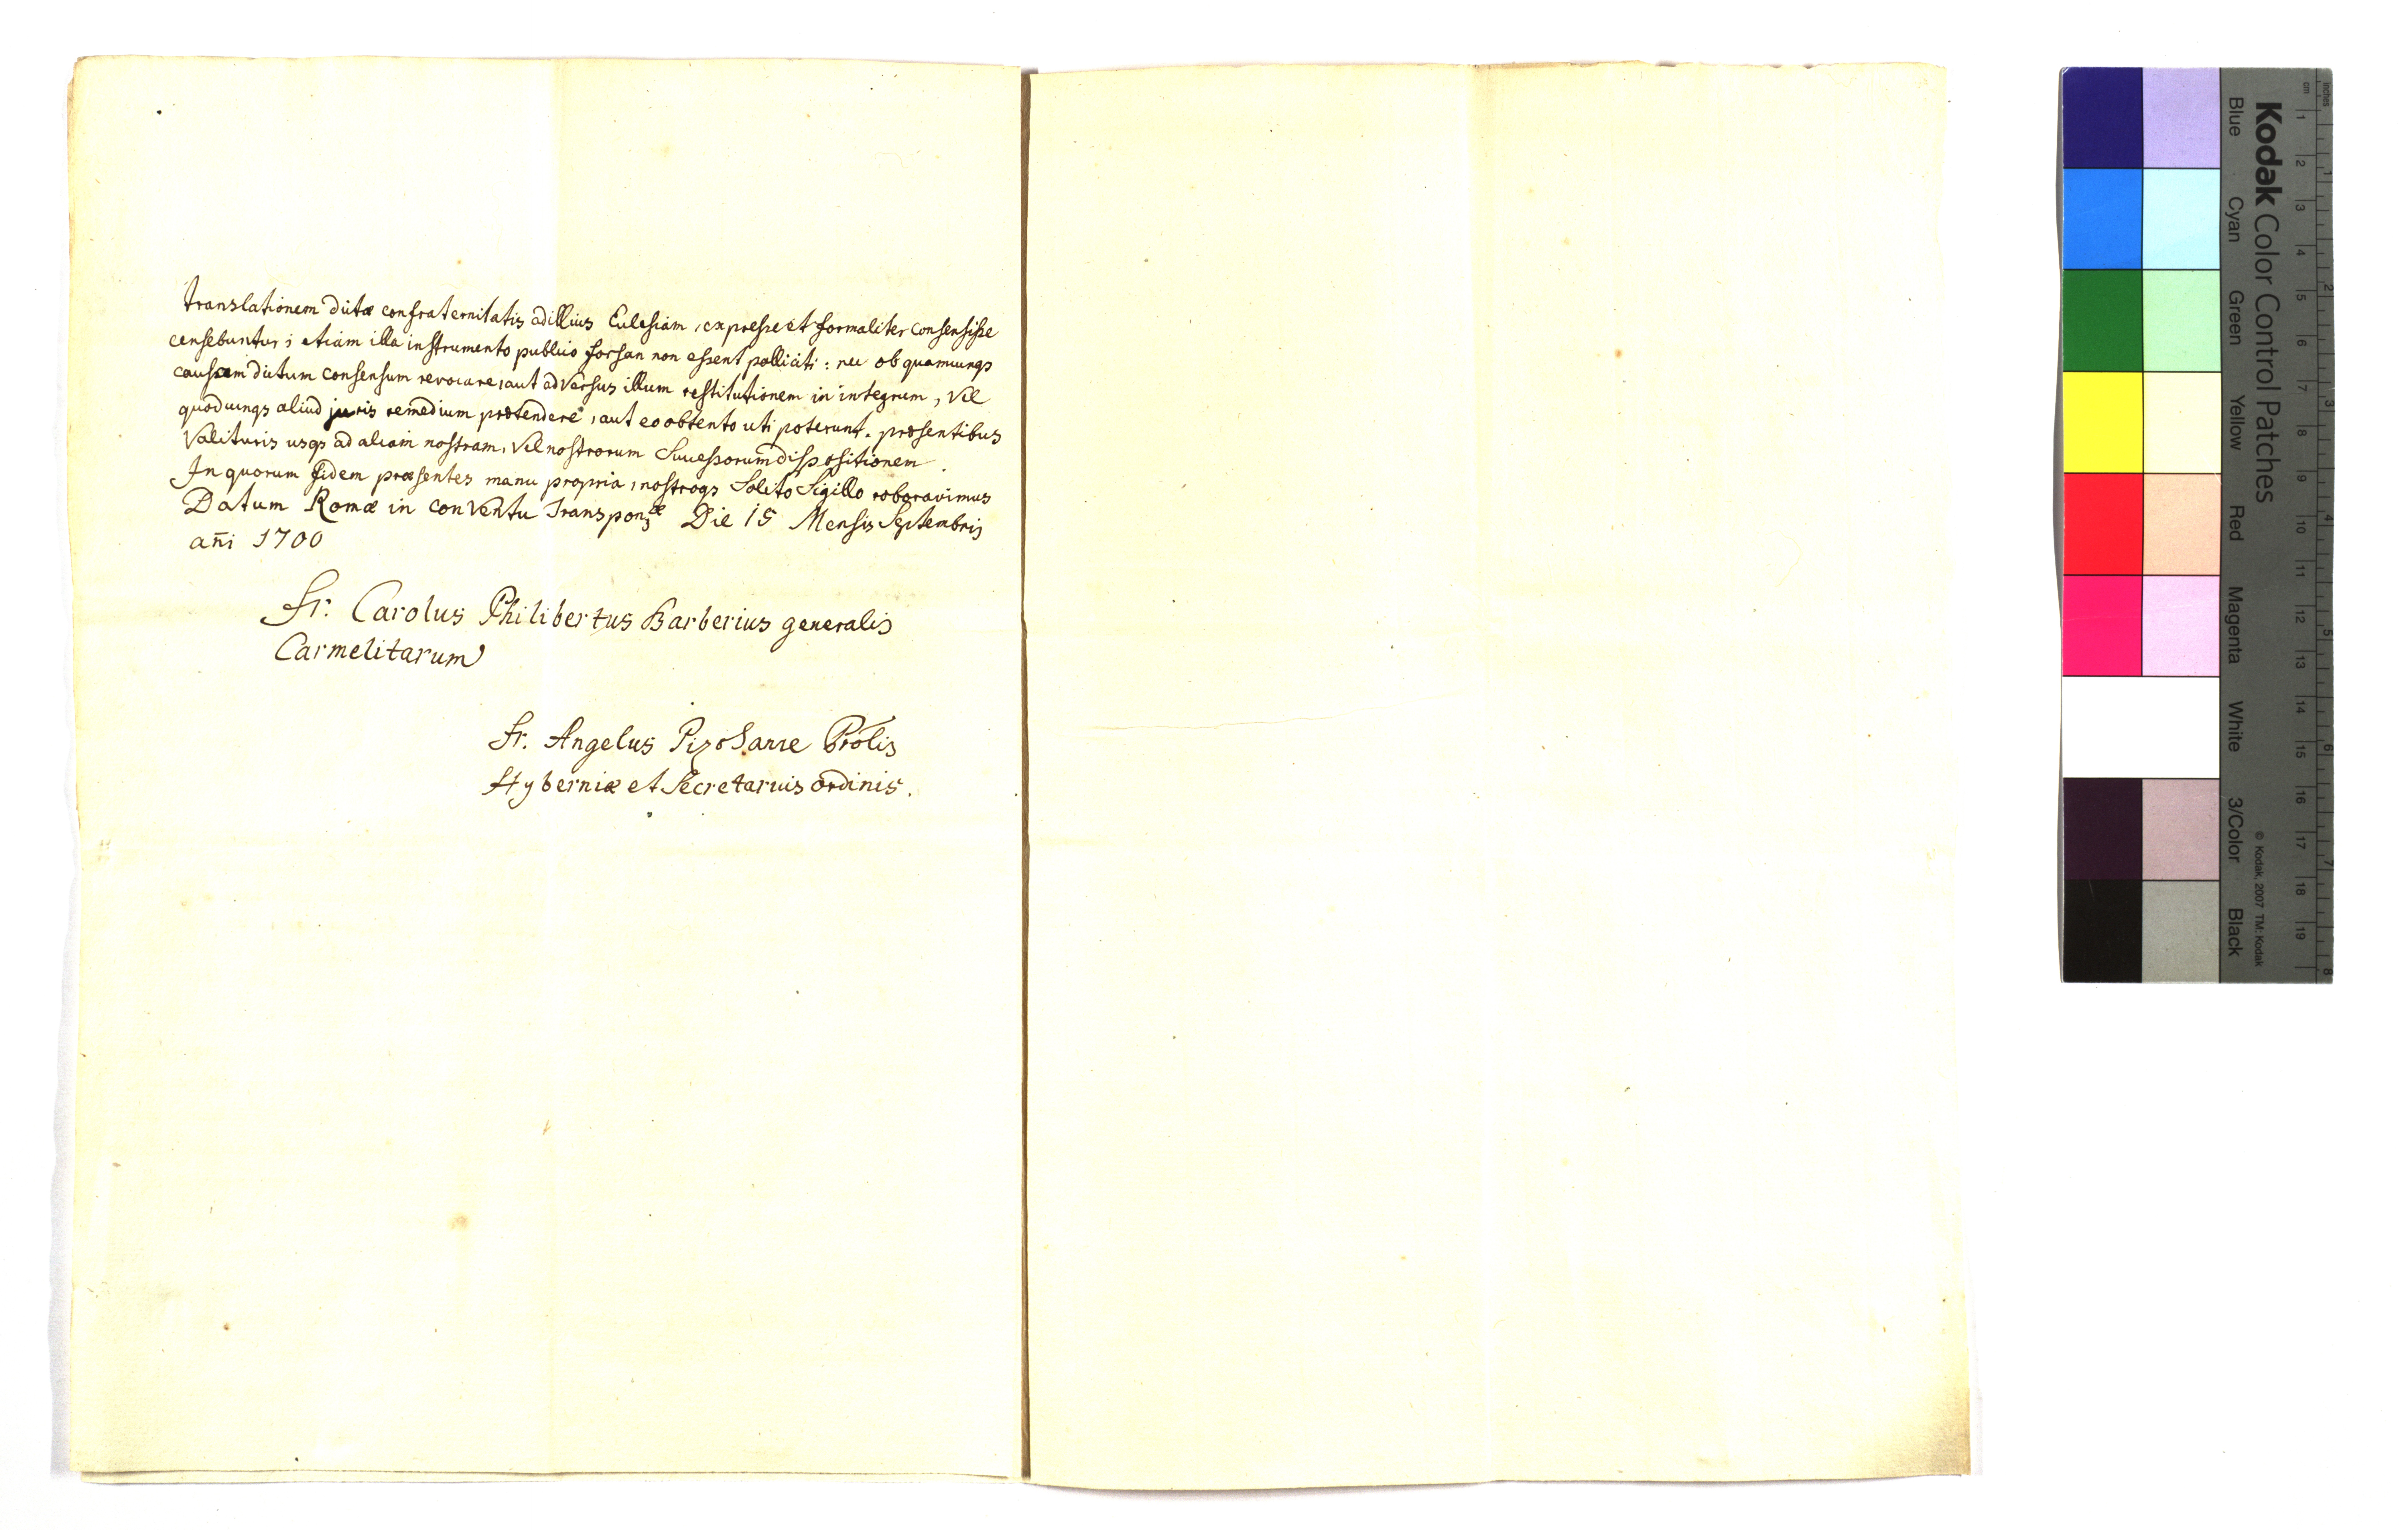 translationem dictæ confraternitatis ad illius Ecclesiam, expresse et formaliter consensisse
censebuntur; etiam illa instrumento publico forsan non essent polliciti: nec ob quamcunqs
causam dictum consensum revocare, aut adversus illum restitutionem in integrum, vel
quodcunqs aliud juris remedium prætendere, aut eo obtento uti poterunt. præsentibus
valituris usqs ad aliam nostram, vel nostrorum Successorum dispositionem.
In quorum fidem præsentes manu propria, nostroqs Solito Sigillo roboravimus
Datum Romæ in conventu Transponæ Die 15 Mensis Septembris
añi 1700
Fr. Carolus Philibertus Barberius generalis
Carmelitarum
Fr. Angelus Prõlis
Hyberniæ et Secretarius ordinis.
Kodak Color Control Patches
Blue Cyan Green Yellow Red Magenta White 3/Color Black
© Kodak, 2007 TM: Kodak
inches 1 2 3 4 5 6 7 8
cm 1 2 3 4 5 6 7 8 9 10 11 12 13 14 15 16 17 18 19